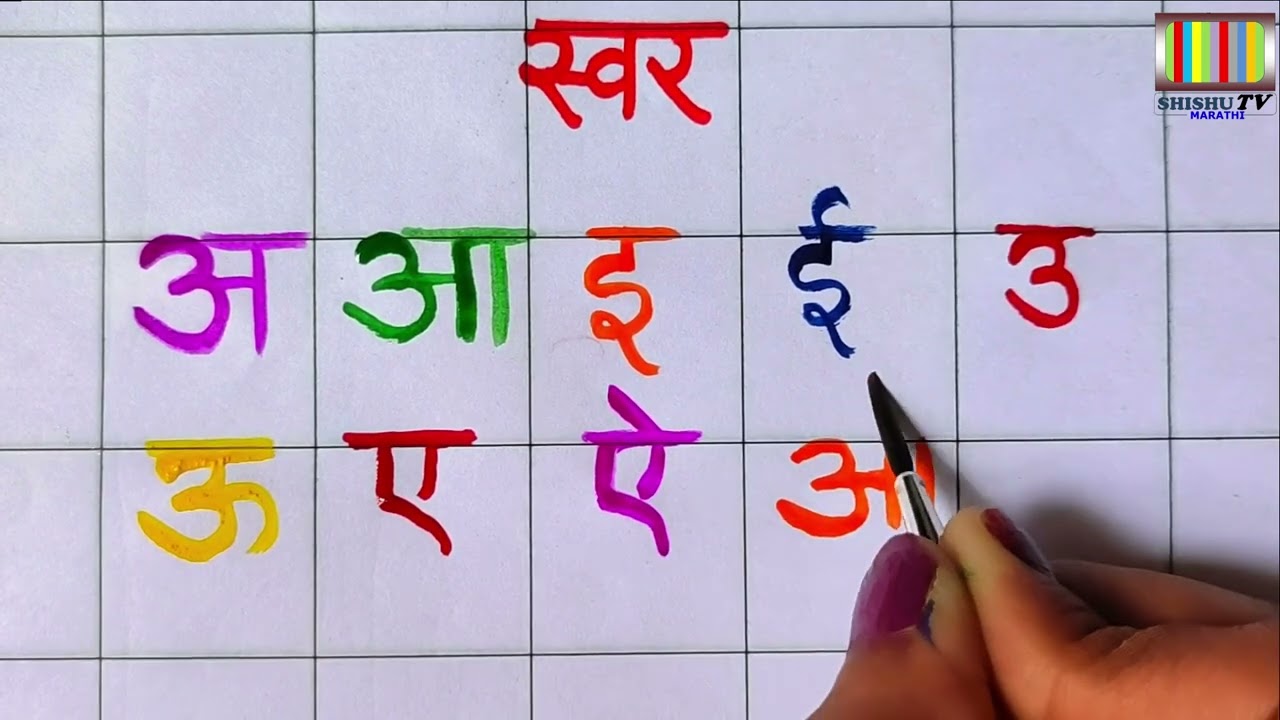 स्वर
SHISHU TV
MARATHI
अ आ इ ई उ
ऊ ए ऐ